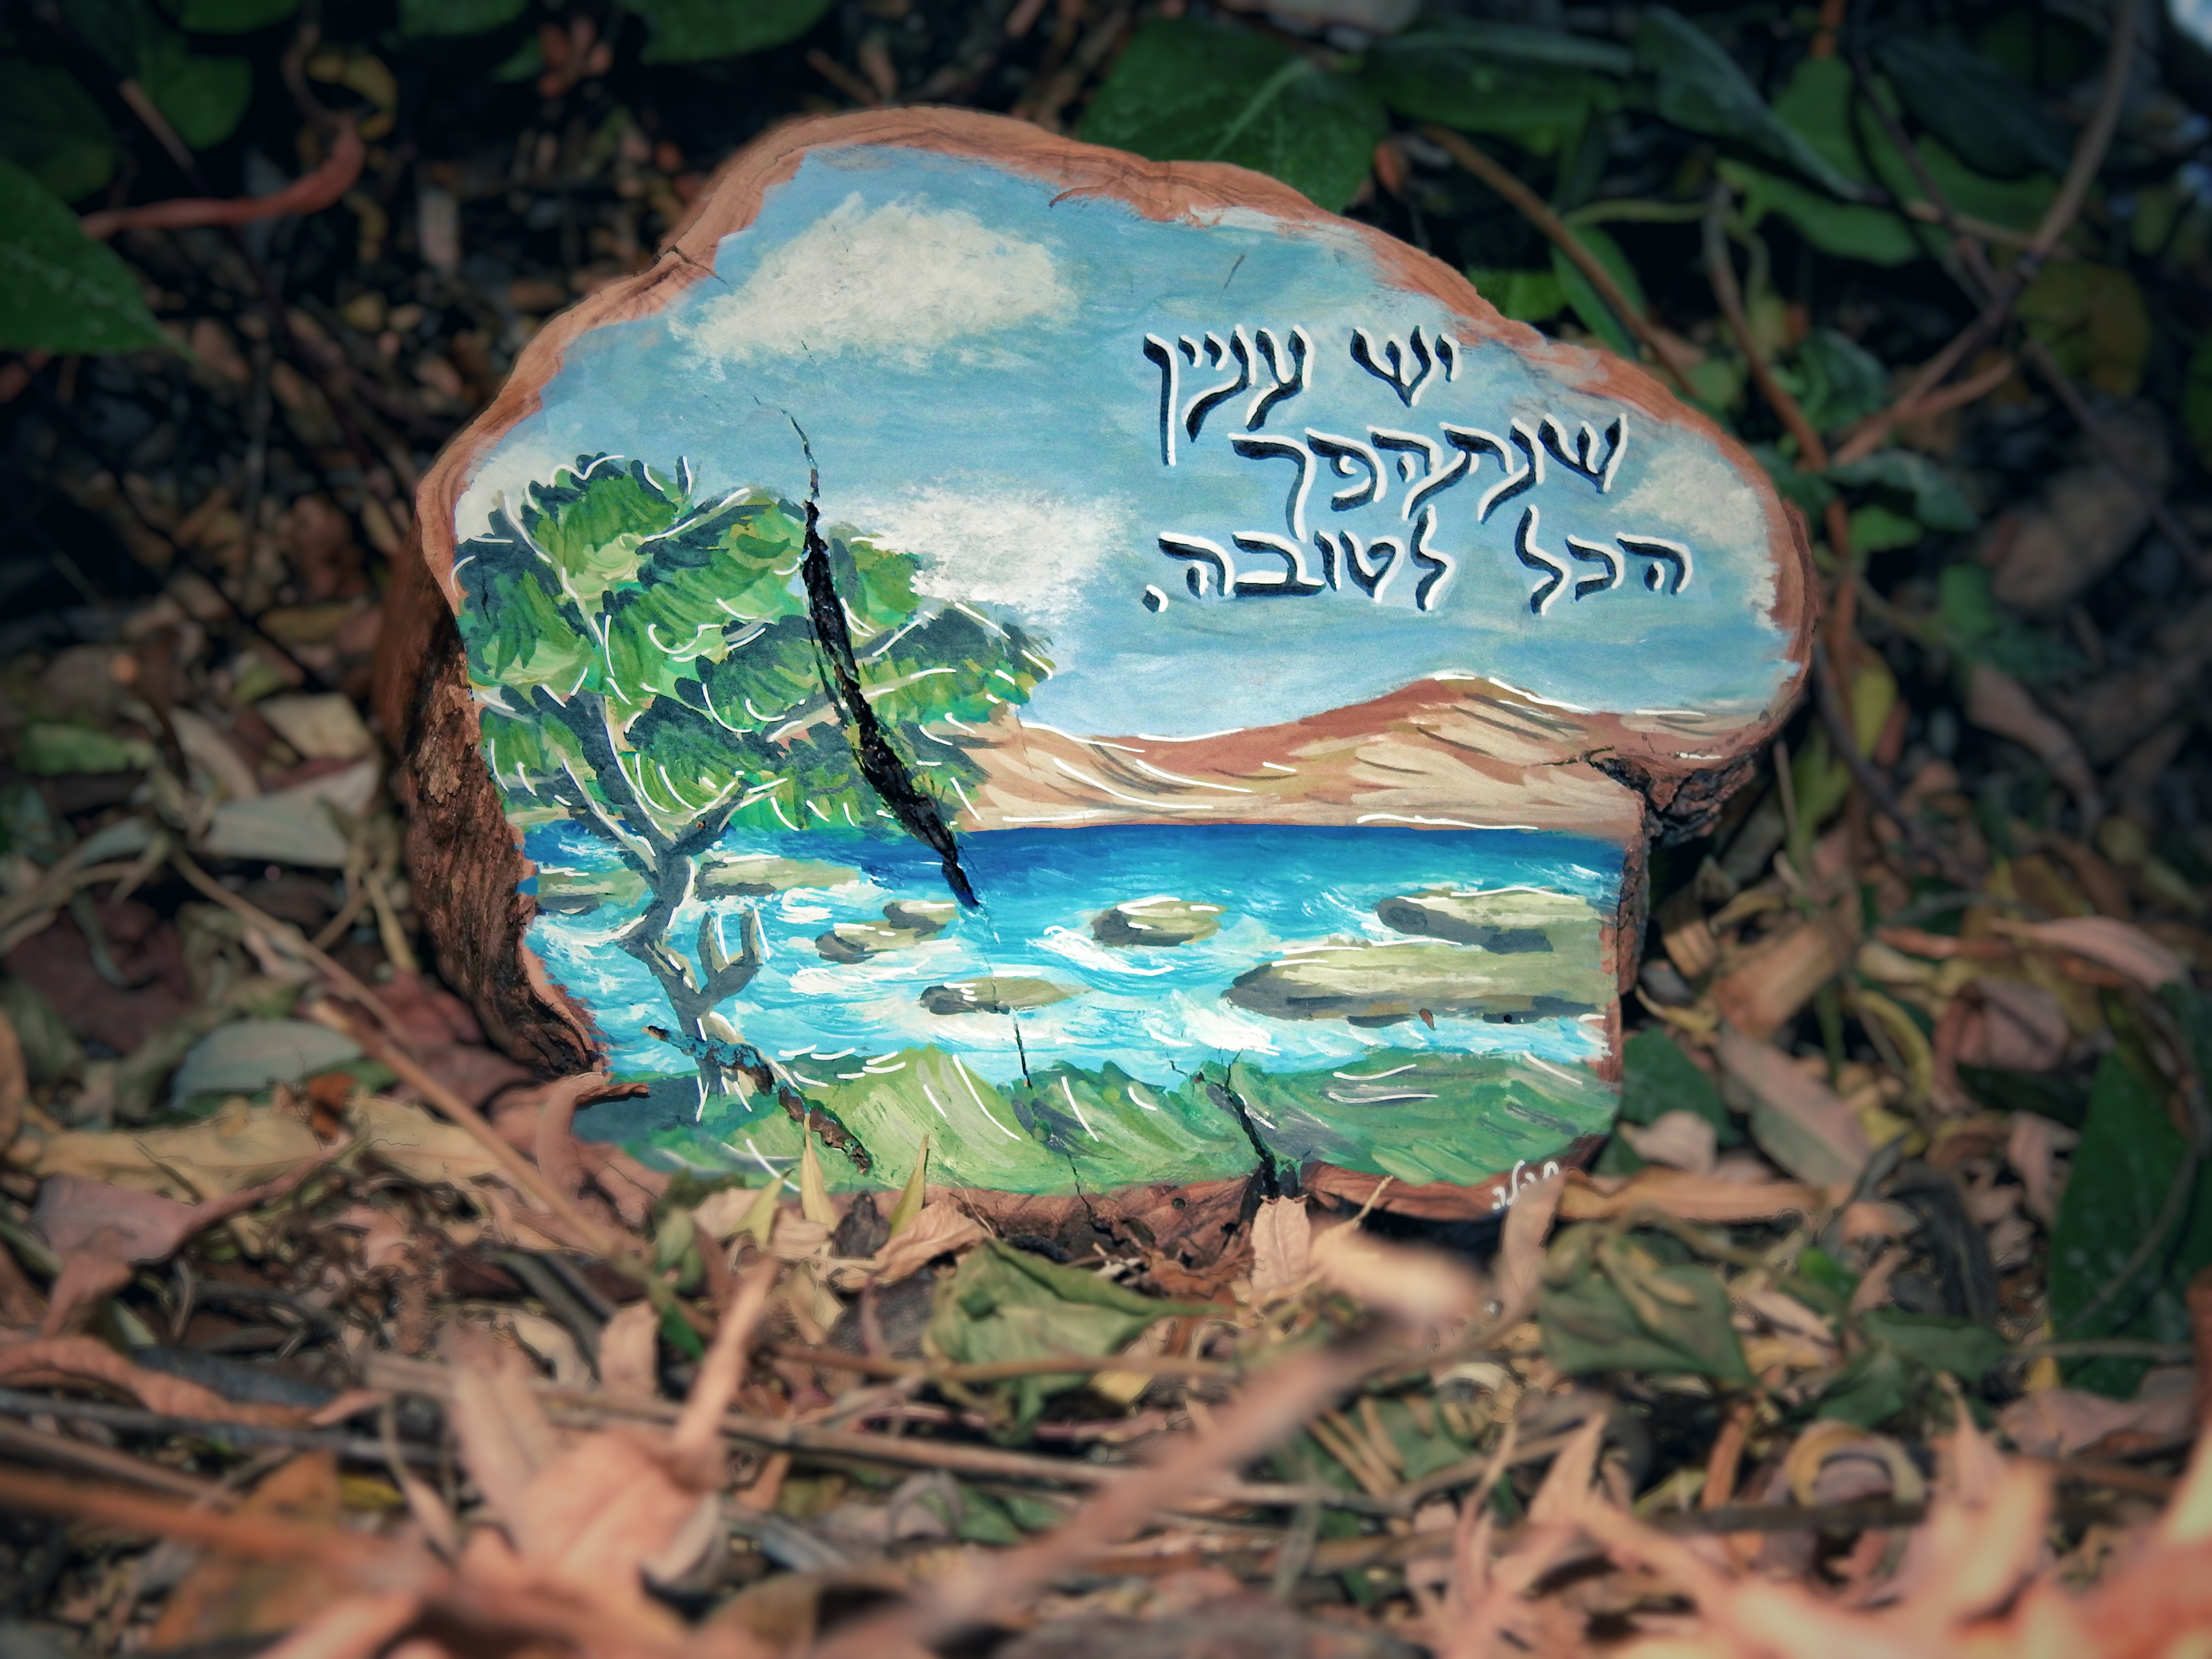 יש עניין
שנתהפך
הכל לטובה.